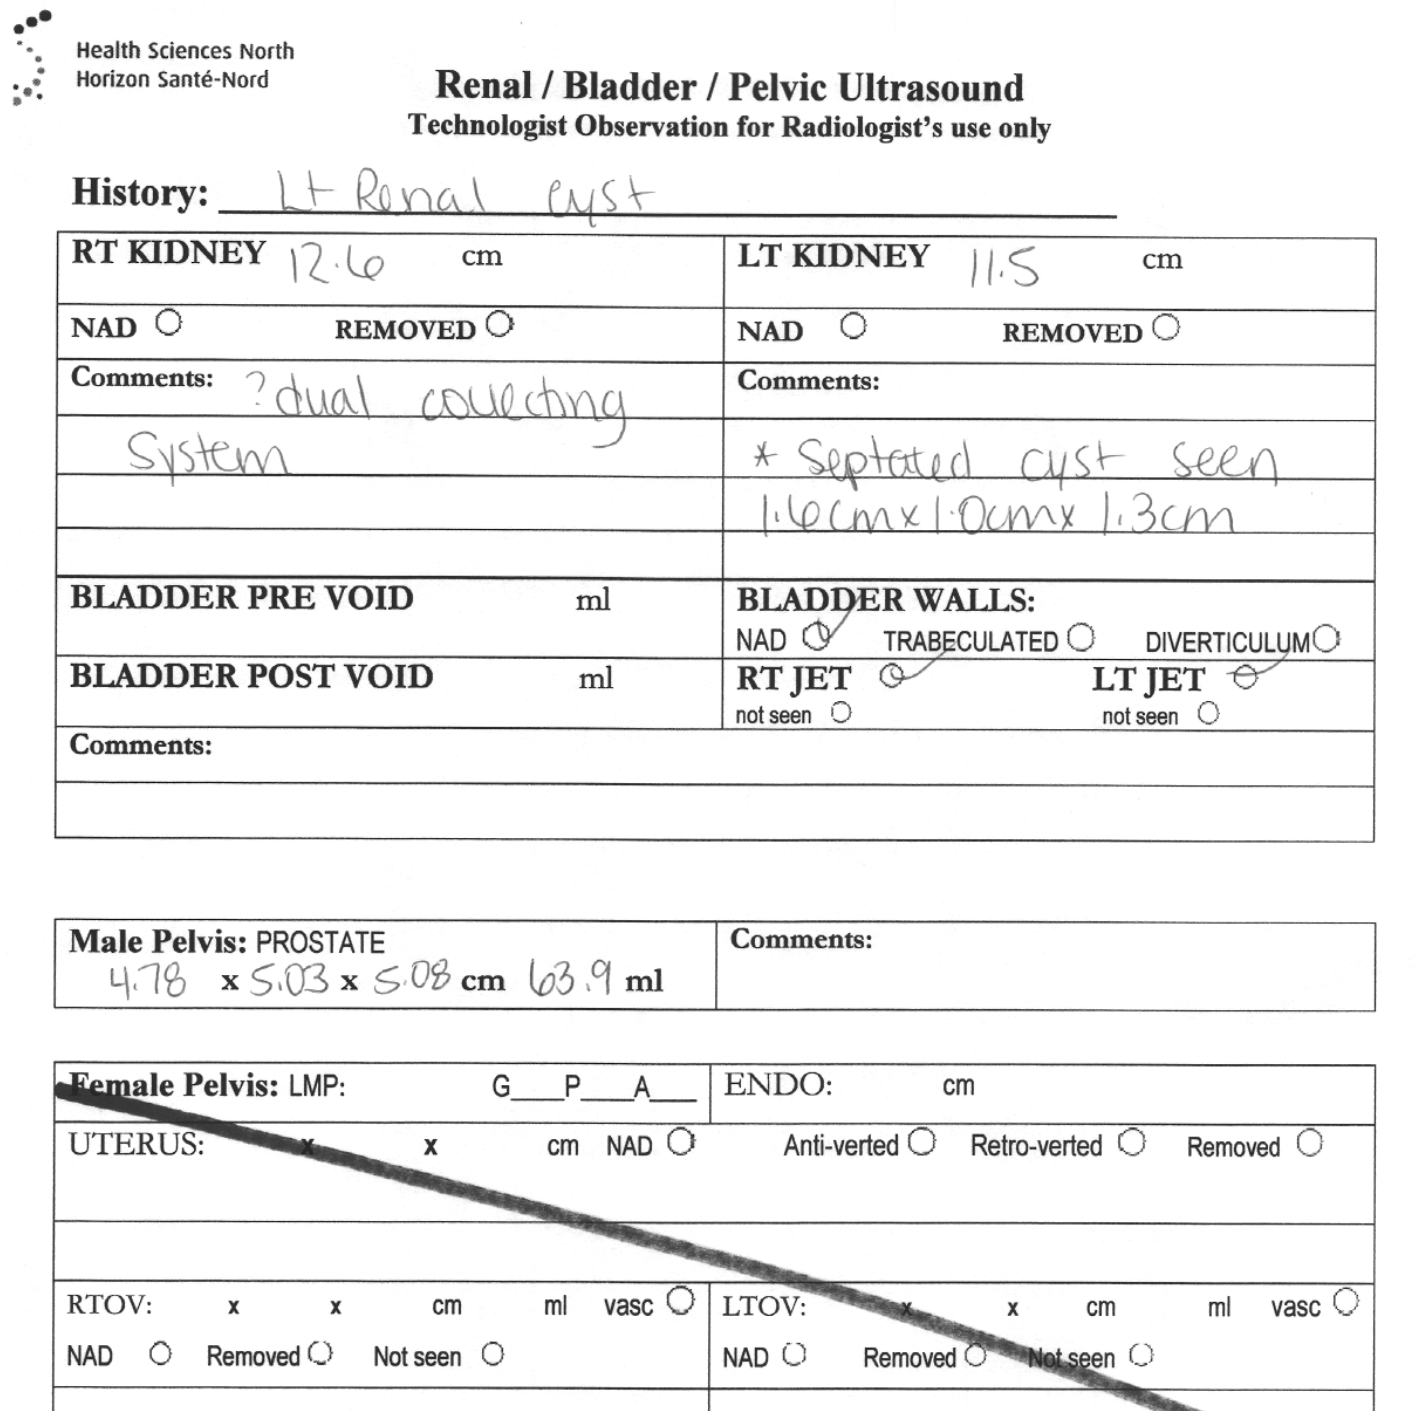 Health Sciences North
Horizon Santé-Nord
Renal / Bladder / Pelvic Ultrasound
Technologist Observation for Radiologist's use only
History: Lt Renal cyst
RT KIDNEY 12.6 cm
LT KIDNEY 11.5 cm
NAD REMOVED
NAD REMOVED
Comments: ? dual collecting
System
Comments:
* Septated cyst seen
1.6cm x 1.0cm x 1.3cm
BLADDER PRE VOID ml
BLADDER WALLS:
NAD TRABECULATED DIVERTICULUM
BLADDER POST VOID ml
RT JET LT JET
not seen not seen
Comments:
Male Pelvis: PROSTATE
4.78 x 5.03 x 5.08 cm 63.9 ml
Comments:
Female Pelvis: LMP: G___P___A___
ENDO: cm
UTERUS: x x cm NAD Anti-verted Retro-verted Removed
RTOV: x x cm ml vasc
NAD Removed Not seen
LTOV: x x cm ml vasc
NAD Removed Not seen